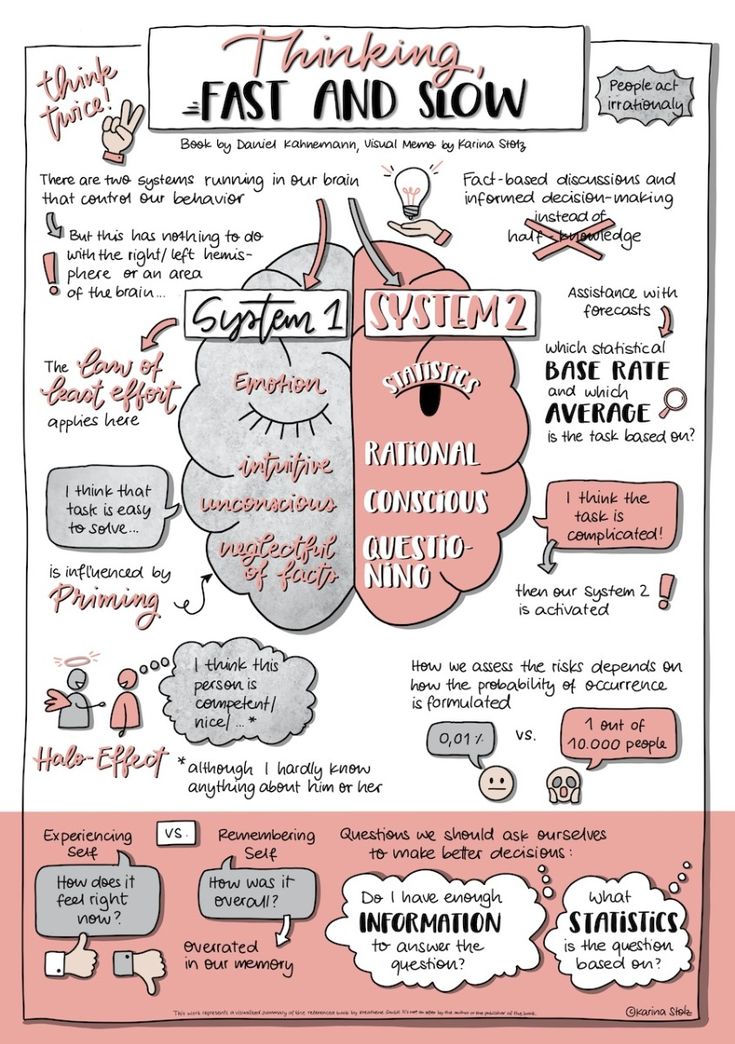 Thinking,
FAST AND SLOW
think
twice!
People act
irrationaly
Book by Daniel Kahnemann, Visual Memo by Karina Stolz
There are two systems running in our brain
that control our behavior
But this has nothing to do
with the right/left hemis-
phere or an area
of the brain...
!
Fact-based discussions and
informed decision-making
instead of
half-knowledge
System 1
SYSTEM 2
Emotion
intuitive
unconscious
neglectful
of facts
STATISTICS
RATIONAL
CONSCIOUS
QUESTIO-
NING
The law of
least effort
applies here
I think that
task is easy
to solve...
is influenced by
Priming
Assistance with
forecasts
Which statistical
BASE RATE
and which
AVERAGE
is the task based on?
I think the
task is
complicated!
then our System 2
is activated
!
I think this
person is
competent/
nice/ ... *
Halo-Effect
*although I hardly know
anything about him or her
How we assess the risks depends on
how the probability of occurrence
is formulated
0,01 %
vs.
1 out of
10.000 people
Experiencing
Self
vs.
Remembering
Self
How does it
feel right
now?
How was it
overall?
overrated
in our memory
Questions we should ask ourselves
to make better decisions:
Do I have enough
INFORMATION
to answer the
question?
What
STATISTICS
is the question
based on?
©Karina Stolz